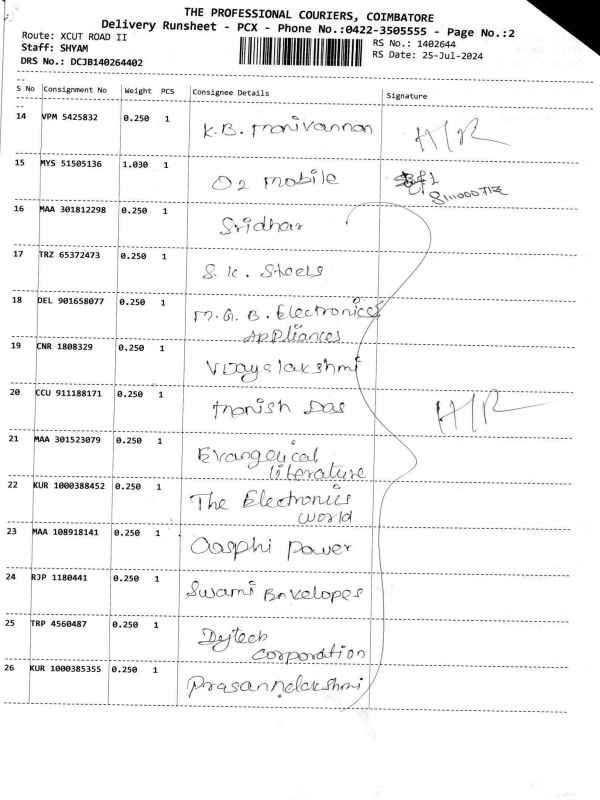 THE PROFESSIONAL COURIERS, COIMBATORE
Delivery Runsheet - PCX - Phone No.:0422-3505555 - Page No.:2
Route: XCUT ROAD II RS No.: 1402644
Staff: SHYAM RS Date: 25-Jul-2024
DRS No.: DCJB140264402
S No Consignment No Weight PCS Consignee Details Signature
14 VPM 5425832 0.250 1 K.B. Manivannan H/R
15 MYS 51505136 1.030 1 O2 mobile
16 MAA 301812298 0.250 1 Sridhar
17 TRZ 65372473 0.250 1 S.K. Steels
18 DEL 901658077 0.250 1 M.G.B. Electronics
Appliances
19 CNR 1808329 0.250 1 Vijayalakshmi
20 CCU 911188171 0.250 1 Monish Das H/R
21 MAA 301523079 0.250 1 Evangelical
literature
22 KUR 1000388452 0.250 1 The Electronics
world
23 MAA 108918141 0.250 1 Aasphi Power
24 RJP 1180441 0.250 1 Swami Envelopes
25 TRP 4560487 0.250 1 Dejtech
Corporation
26 KUR 1000385355 0.250 1 Prasannalakshmi